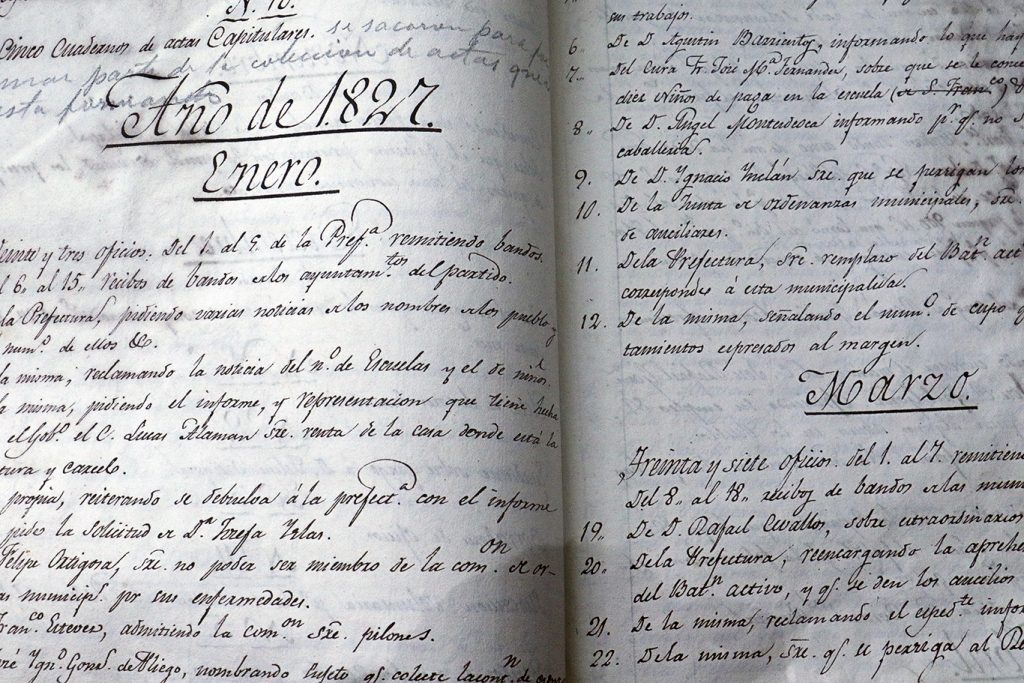 N. 10.
Cinco Cuadernos de actas Capitulares. se sacaron para
mar parte de la coleccion de actas que
esta formando
Año de 1.827.
Enero.
Veinte y tres oficios. Del 1. al 5. de la Prefª remitiendo bandos.
6. al 15,, recibos de bandos de los ayuntamtos del partido.
la Prefectura, pidiendo varias noticias de los nombres de los pueblos y
numo. de ellos &.
la misma, reclamando la noticia del no. de Escuelas y el de niños.
la misma, pidiendo el informe, y representacion que tiene hecha
el Gobo. el C. Lucas Alaman sre. renta de la casa donde está la
tura y carcel.
propia, reiterando se debuelva á la prefectª con el informe
pide la solicitud de Dª Josefa Yslas.
Felipe Ortigosa, sre. no poder ser miembro de la comon de or-
as municips. pr sus enfermedades.
Franco. Estever, admitiendo la comon sre. pilones.
Ygno. Gons. de Pliego, nombrando sujeto qe. colecte la cont.n de
sus trabajos.
6,, De D. Agustin Barrientos, informando lo que hay
7,, Del Cura Fr. José Mª Fernandes, sobre que se le conce
diez Niños de paga en la escuela (de S. Franco.)
8,, De D. Angel Montesdeoca informando pr. qe. no
caballeria.
9. De D. Ygnacio Ynclán sre. que se persigan los
10. De la Junta de ordenanzas municipales, sre.
de auciliares.
11. Dela Prefectura, sre. remplazo del Batn. act
corresponde á esta municipalida.
12. De la misma, señalando el numo. de cupo
tamientos espresados al margen.
Marzo.
Treinta y siete oficios. del 1. al 7. remitien
Del 8,, al 18,, recibos de bandos de las muni
19,, De D. Rafael Cevallos, sobre extraordinarios
20,, Dela Prefectura, reencargando la aprehe
del Batn. activo, y qe. se den los aucilios
21. De la misma, reclamando el espedte. infor
22. Dela misma, sre. qe. se persiga al